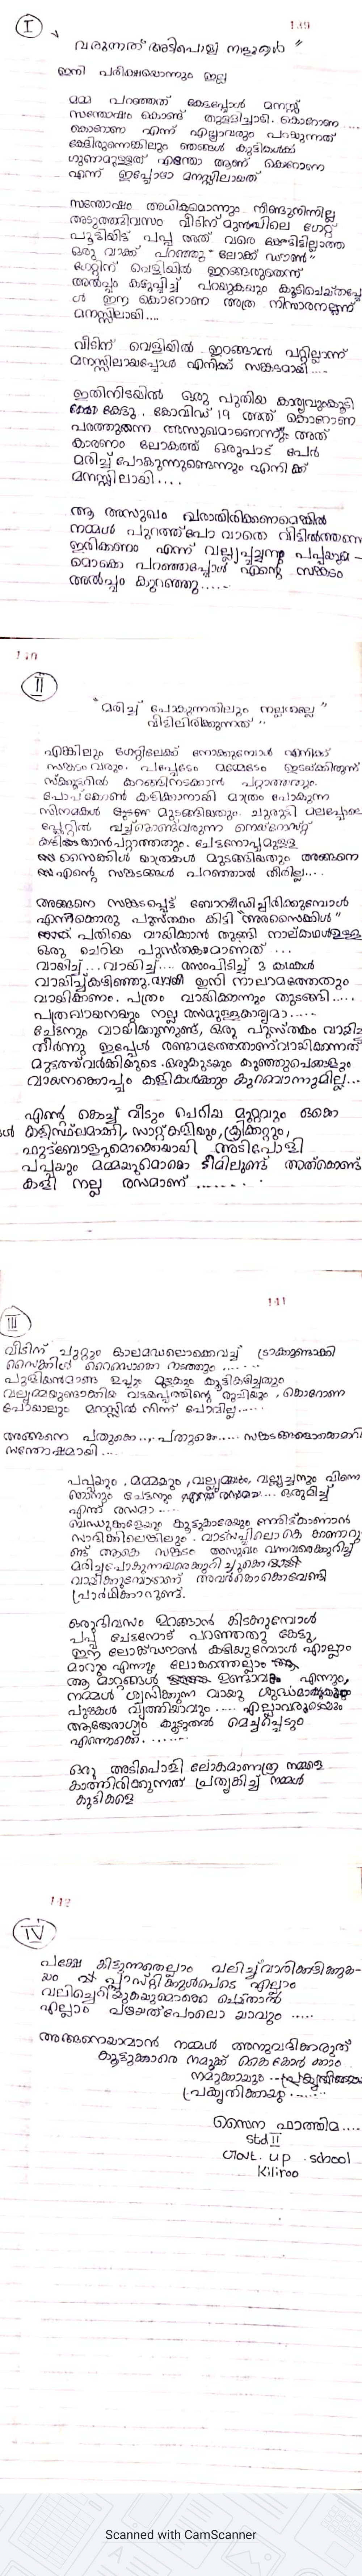 139
I
വരുന്നത് അടിപൊളി നാളുകൾ "
ഇനി പരീക്ഷയൊന്നും ഇല്ല
മമ്മ പറഞ്ഞത് കേട്ടപ്പോൾ മനസ്സ്
സന്തോഷം കൊണ്ട് തുള്ളിച്ചാടി. കൊറോണ ....
കൊറോണ എന്ന് എല്ലാവരും പറയുന്നത്
കേട്ടിരുന്നെങ്കിലും ഞങ്ങൾ കുട്ടികൾക്ക്
ഗുണമുള്ളത് എന്തോ ആണ് കൊറോണ
എന്ന് ഇപ്പോഴാ മനസ്സിലായത്
സന്തോഷം അധികമൊന്നും നീണ്ടുനിന്നില്ല
അടുത്തദിവസം വീടിന് മുൻപിലെ ഗേറ്റ്
പൂട്ടിയിട്ട് പപ്പ അത് വരെ കേട്ടിട്ടില്ലാത്ത
ഒരു വാക്ക് പറഞ്ഞു "ലോക്ക് ഡൗൺ"
ഗേറ്റിന് വെളിയിൽ ഇറങ്ങരുതെന്ന്
അൽപ്പം കടുപ്പിച്ച് പറയുകയും കൂടിചെയ്തപ്പോ
ൾ ഈ കൊറോണ അത്ര നിസാരനല്ലന്ന്
മനസ്സിലായി....
വീടിന് വെളിയിൽ ഇറങ്ങാൻ പറ്റില്ലാന്ന്
മനസ്സിലായപ്പോൾ എനിക്ക് സങ്കടമായി....
ഇതിനിടയിൽ ഒരു പുതിയ കാര്യവുംകൂടി
കേട്ടു . കോവിഡ് 19 അത് കൊറോണ
പരത്തുന്ന അസുഖമാണെന്നും അത്
കാരണം ലോകത്ത് ഒരുപാട് പേർ
മരിച്ച് പോകുന്നുണ്ടെന്നും എനിക്ക്
മനസ്സിലായി....
ആ അസുഖം വരാതിരിക്കണമെങ്കിൽ
നമ്മൾ പുറത്ത് പോവാതെ വീട്ടിൽത്തന്നെ
ഇരിക്കണം എന്ന് വല്ല്യച്ചനും പപ്പയുമൊ-
മൊക്കെ പറഞ്ഞപ്പോൾ എന്റെ സങ്കടം
അൽപ്പം കുറഞ്ഞു......
140
II
"മരിച്ച് പോകുന്നതിലും നല്ലതല്ലെ"
വീട്ടിലിരിക്കുന്നത് "
എങ്കിലും ഗേറ്റിലേക്ക് നോക്കുമ്പോൾ എനിക്ക്
സങ്കടം വരും. പപ്പേടേം മമ്മേടേം ഇടയ്ക്കിരുന്ന്
സ്ക്കൂട്ടറിൽ കറങ്ങിനടക്കാൻ പറ്റാത്തതും.
പോപ് കോൺ കഴിക്കാനായി മാത്രം പോകുന്ന
സിനിമകൾ മുടങ്ങിയതും. ചുരുട്ടി വലപ്പോഴെ
പ്ലേറ്റിൽ വച്ച്കൊണ്ട് വരുന്ന നെയ്റോസ്റ്റ്
കഴിക്കാൻപറ്റാത്തതും. ചേട്ടനോപ്പമുള്ള
സൈക്കിൾ യാത്രകൾ മുടങ്ങിയതും അങ്ങനെ
എന്റെ സങ്കടങ്ങൾ പറഞ്ഞാൽ തീരില്ല....
അങ്ങനെ സങ്കടപ്പെട്ട് ബോറടിച്ചിരിക്കുമ്പോൾ
എനിക്കൊരു പുസ്തകം കിട്ടി "അരസൈക്കിൾ"
പതിയെ വായിക്കാൻ തുടങ്ങി നാല്കഥകളുള്ള
ഒരു ചെറിയ പുസ്തകമാണത് ...
വായിച്ച് ... വായിച്ച്.... രസംപിടിച്ച് 3 കഥകൾ
വായിച്ച്കഴിഞ്ഞു. ഇനി നാലാമത്തേതും
വായിക്കണം. പത്രം വായിക്കാനും തുടങ്ങി.....
പത്രവായനയും നല്ല രസമുള്ളകാര്യമാ....
ചേട്ടനും വായിക്കുന്നുണ്ട്, ഒരു പുസ്തകം വായിച്ച്
തീർന്നു ഇപ്പോൾ രണ്ടാമത്തെതാണ് വായിക്കുന്നത്
മുട്ടത്ത് വർക്കിയുടെ ഒരുകുടയും കുഞ്ഞുപെങ്ങളും
വായനക്കൊപ്പം കളികൾക്കും കുറവൊന്നുമില്ല...
എന്റെ കൊച്ച് വീടും ചെറിയ മുറ്റവും ഒക്കെ
കളിസ്ഥലമാക്കി, സാറ്റ് കളിയും, ക്രിക്കറ്റും,
ഫുട്ബോളുമൊക്കെയായി അടിപൊളി
പപ്പയും മമ്മയുമൊക്കെ ടീമിലുണ്ട് അത്കൊണ്ട്
കളി നല്ല രസമാണ് ........
141
III
വീടിന് ചുറ്റും ഓലമടലൊക്കെവച്ച് ട്രാക്കുണ്ടാക്കി
സൈക്കിൾ റൈസൊക്കെ നടത്തും......
പുളിയൻമാങ്ങ ഉപ്പും മുളകും കൂട്ടികഴിച്ചതും
വല്ല്യമ്മയുണ്ടാക്കിയ വട്ടയപ്പത്തിന്റെ രുചിയും, കൊറോണ
പോയാലും മനസ്സിൽ നിന്ന് പോവില്ല.....
അങ്ങനെ പതുക്കെ ... പതുക്കെ ..... സങ്കടങ്ങളൊക്കെമാറി
സന്തോഷമായി....
പപ്പയും , മമ്മയും , വല്ല്യമ്മയും, വല്ല്യച്ചനും പിന്നെ
ഞാനും ചേട്ടനും ഒരുമിച്ച്
എന്ത് രസമാ....
ബന്ധുക്കളേയും കൂട്ടുകാരേയും നേരിട്കാണാൻ
സാധിക്കില്ലെങ്കിലും വാട്സപ്പിലൊക്കെ കാണാറു
ണ്ട് ആകെ സങ്കടം അസുഖം വന്നവരെക്കുറിച്ച്
മരിച്ചുപോകുന്നവരെക്കുറിച്ചുമൊക്കെ
വായിക്കുമ്പോഴാണ് അവർക്കൊക്കെവേണ്ടി
പ്രാർത്ഥിക്കാറുണ്ട്.
ഒരുദിവസം ഉറങ്ങാൻ കിടക്കുമ്പോൾ
പപ്പ ചേട്ടനോട് പറഞ്ഞതു കേട്ടു,
ഈ ലോക്ക്ഡൗൺ കഴിയുമ്പോൾ എല്ലാം
മാറും എന്നും ലോകത്തെല്ലാം
ആ മാറ്റങ്ങൾ ഉണ്ടാവും എന്നും,
നമ്മൾ ശ്വസിക്കുന്ന വായു ശുദ്ധമാകും
പുഴകൾ വൃത്തിയാവും .... എല്ലാവരുടേയും
ആരോഗ്യം കൂടുതൽ മെച്ചപ്പെടും
എന്നൊക്കെ........
ഒരു അടിപൊളി ലോകമാണത്രെ നമ്മളെ
കാത്തിരിക്കുന്നത് പ്രത്യേകിച്ച് നമ്മൾ
കുട്ടികളെ
142
IV
പക്ഷേ കിട്ടുന്നതെല്ലാം വലിച്ച് വാരിക്കഴിക്കുക-
യും പ്ലാസ്റ്റിക്കുൾപെടെ എല്ലാം
വലിച്ചെറിയുകയുമൊക്കെ ചെയ്താൽ
എല്ലാം പഴയത്പോലെ യാവും .....
അങ്ങനെയാവാൻ നമ്മൾ അനുവദിക്കരുത്
കൂട്ടുകാരെ നമുക്ക് കൈകോർക്കാം
നമുക്കായും --
പ്രകൃതിക്കായും ......
സൈന ഫാത്തിമ ....
Std II
Govt. up .school
Kiliroo
Scanned with CamScanner